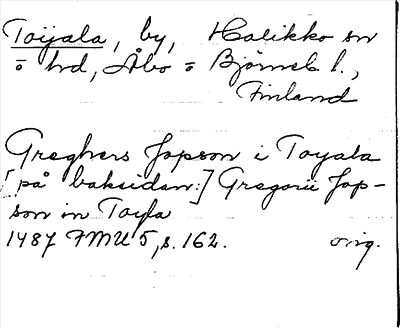 Toijala, by, Halikko sn
o hrd, Åbo o Björneb. l.,
Finland
Greghers Japson i Toyala
[på baksidan:] Gregorii Jap-
son in Toyla
1487 FMU 5, s. 162. orig.